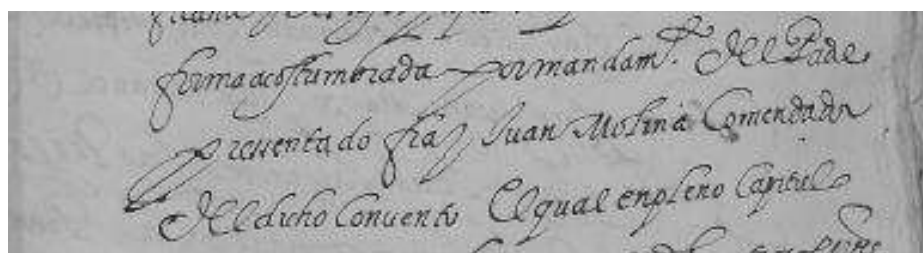 forma acostumbrada por mandam.to del Pade
pressentado fray Juan Molina Comendador
del dicho Convento El qual en pleno Capitulo